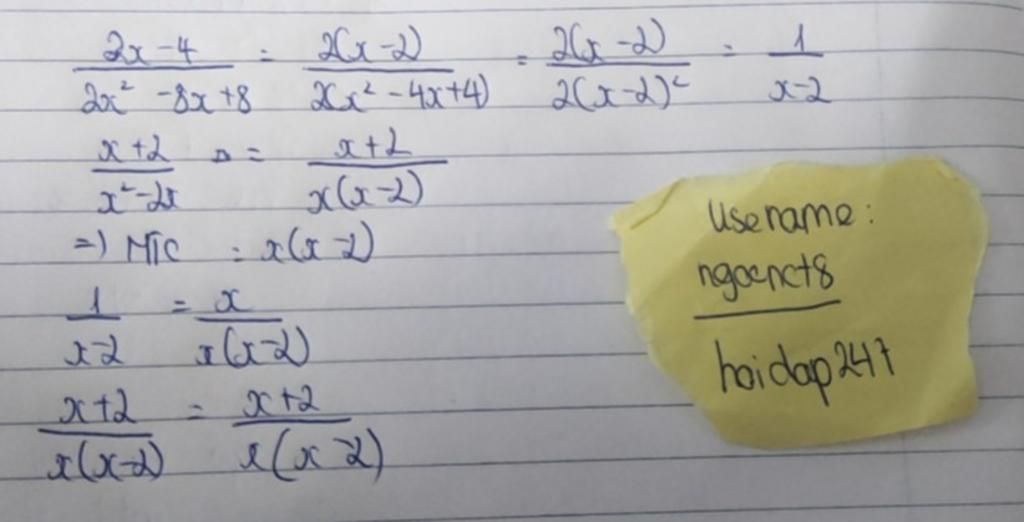 (2x-4)/(2x² -8x+8) = 2(x-2)/2(x²-4x+4) = 2(x-2)/2(x-2)² = 1/(x-2)
(x+2)/(x²-2x) = (x+2)/x(x-2)
=) MTC : x(x-2)
1/(x-2) = x/x(x-2)
(x+2)/x(x-2) = (x+2)/x(x-2)
Usename:
ngocnct8
hoidap247